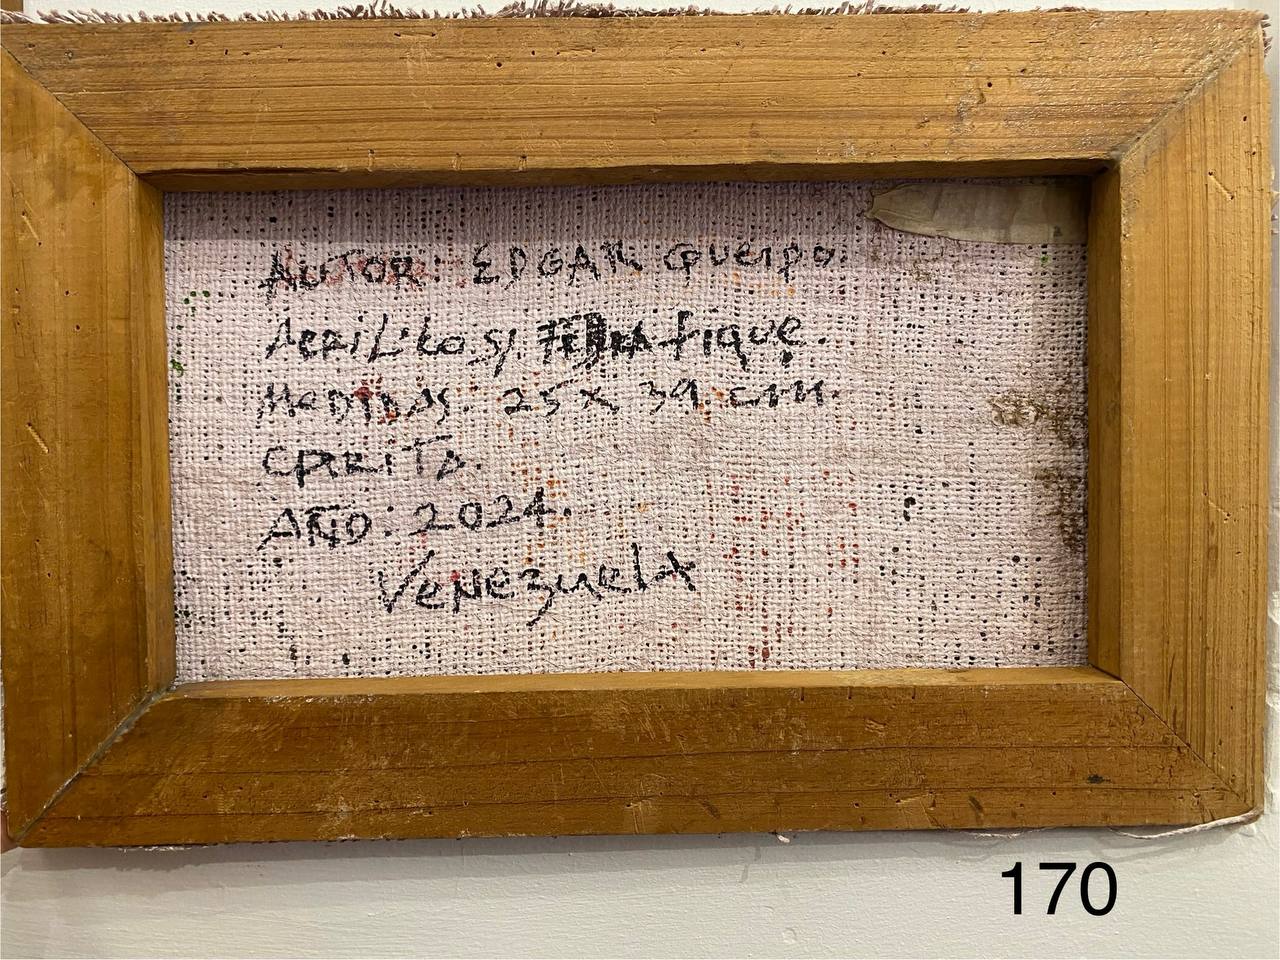 AUTOR: EDGAR Queipo.
Acrilico s/ fique.
MeDIDAS: 25 x 39 cm.
CARITA.
AÑO: 2024.
Venezuela
170